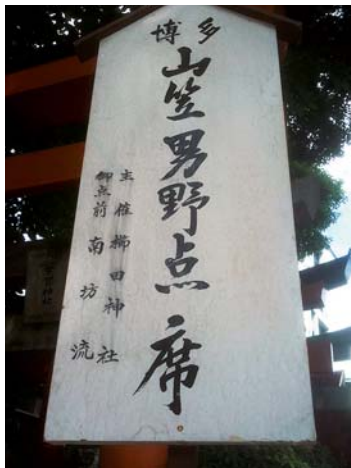 博多
山笠男野点席
主催櫛田神社
御点前南坊流